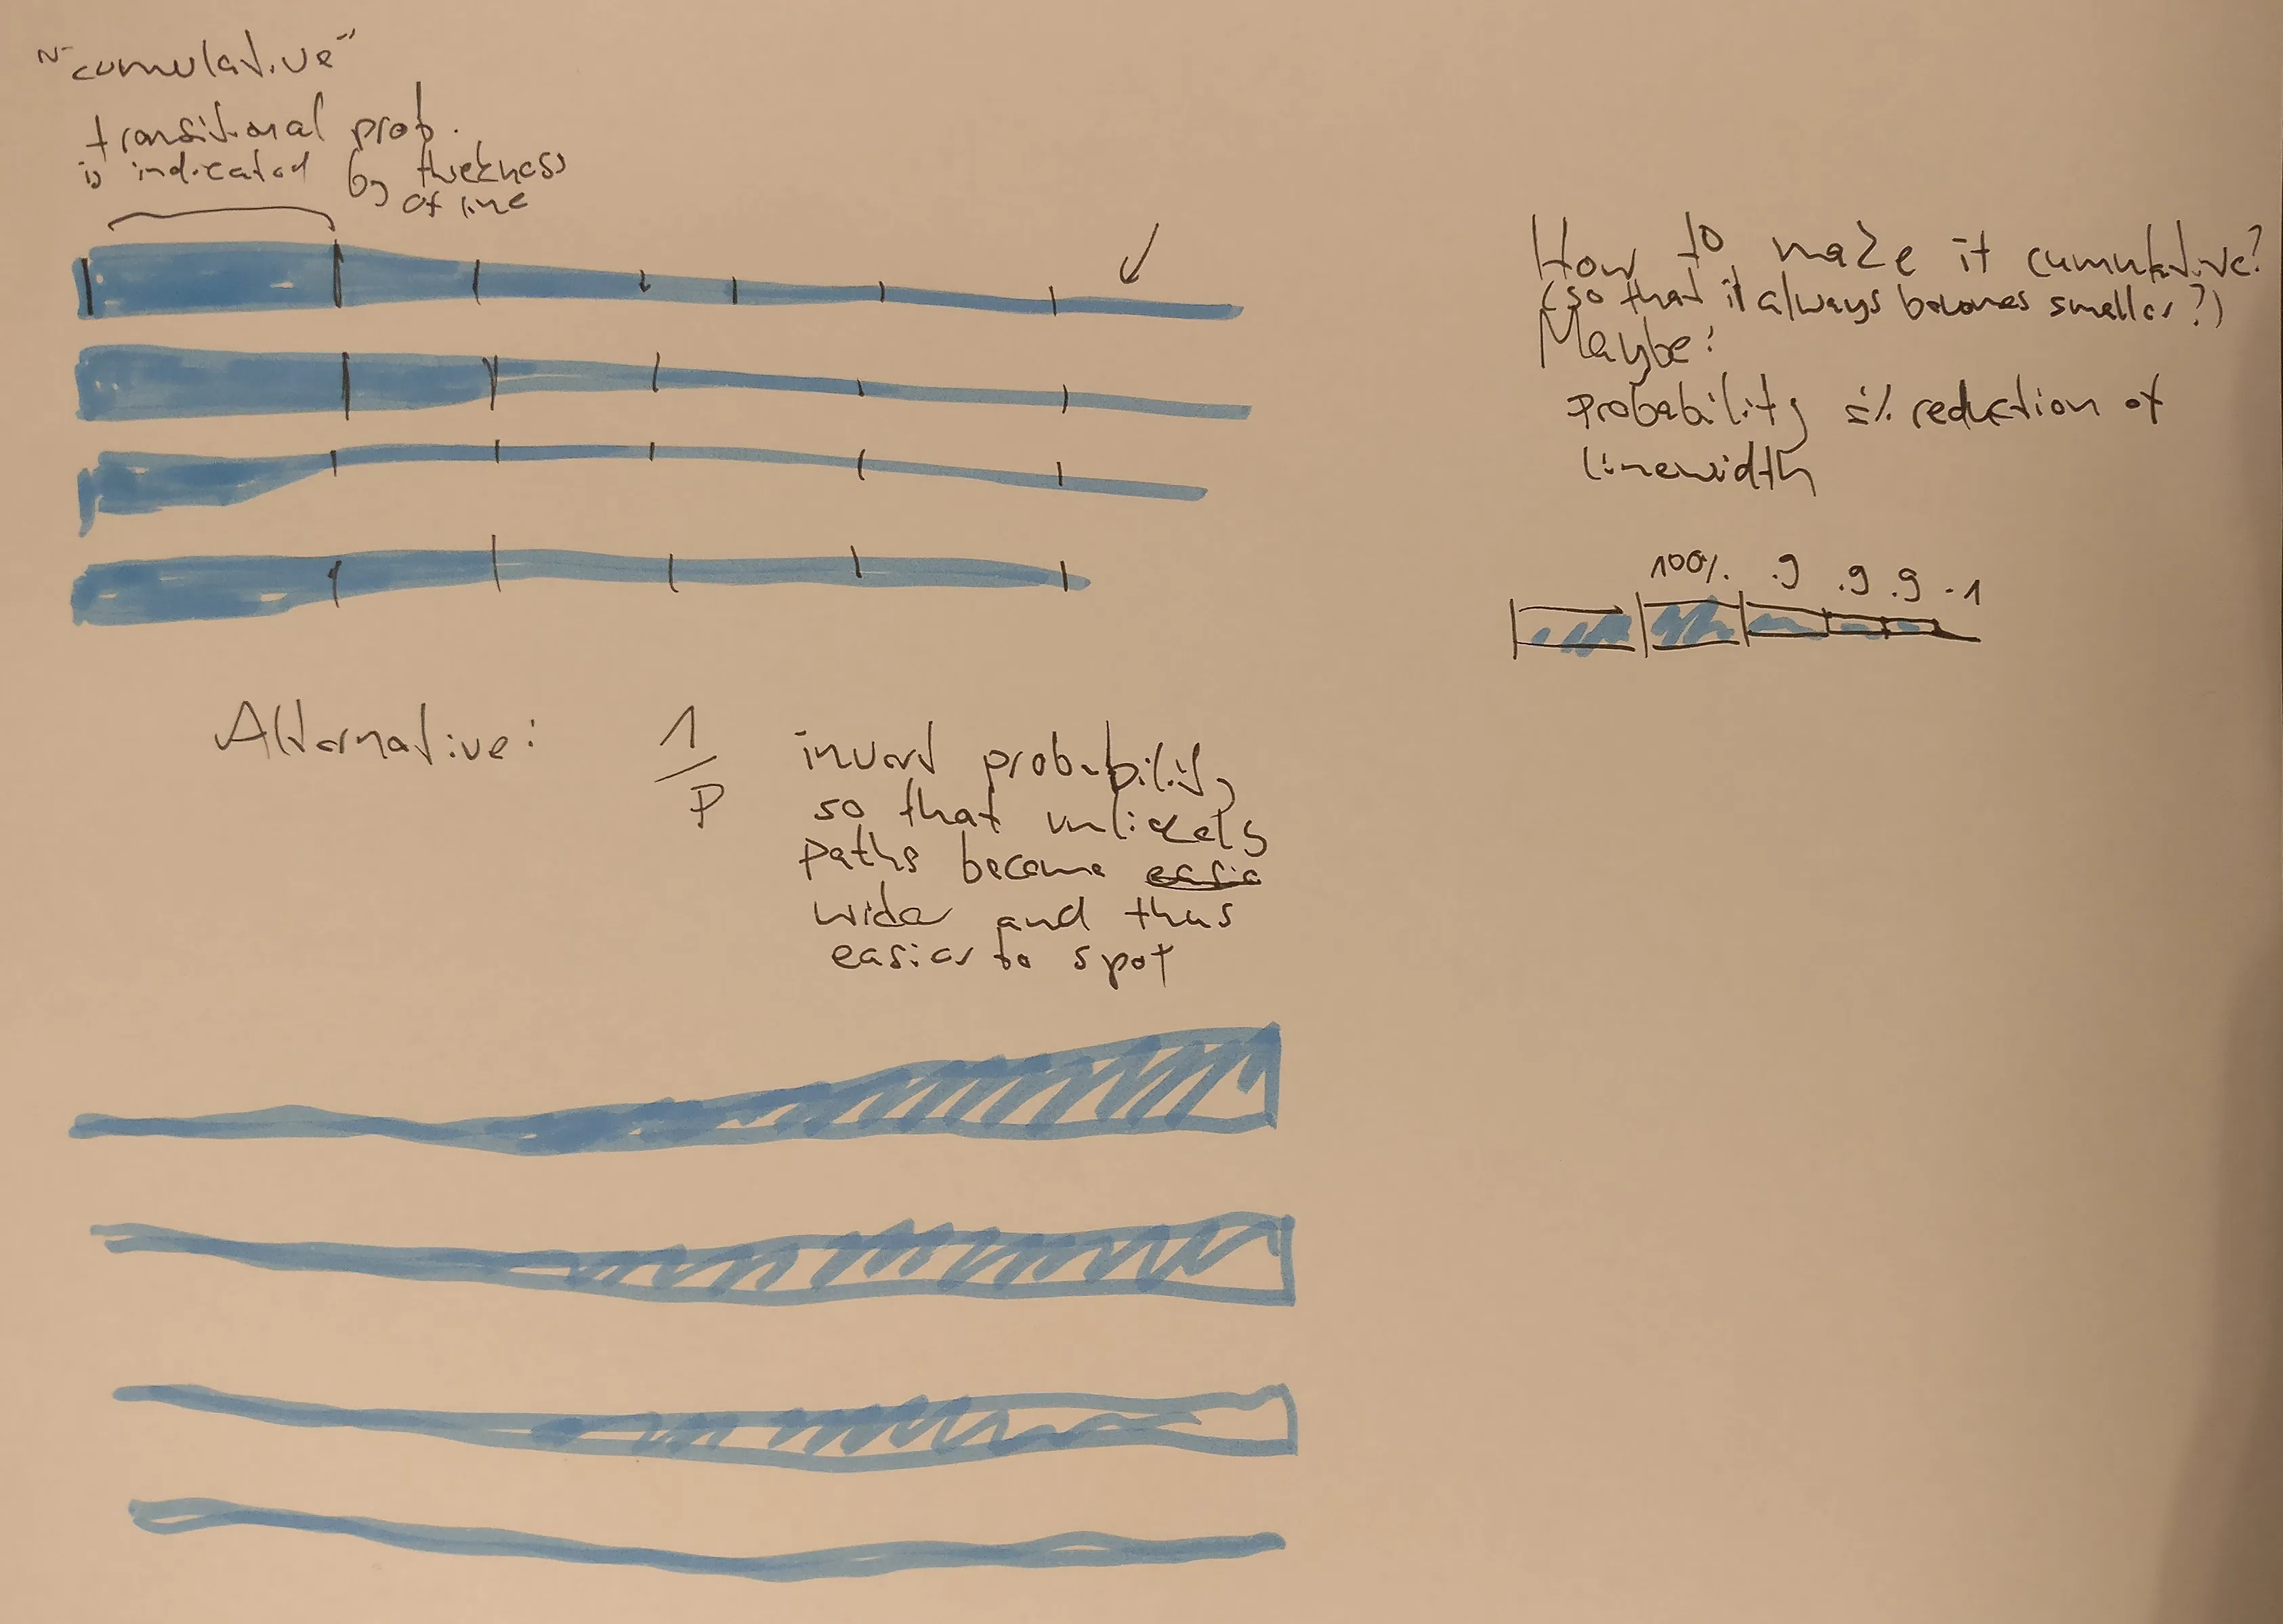 ~"cumulative"
transitional prob.
is indicated by thickness
of line
How to make it cumulative?
(so that it always becomes smaller?)
Maybe:
probability = % reduction of
linewidth
100% .9 .9 .9 .1
Alternative: 1/P invert probability
so that unlikely
paths become easie
wider and thus
easier to spot